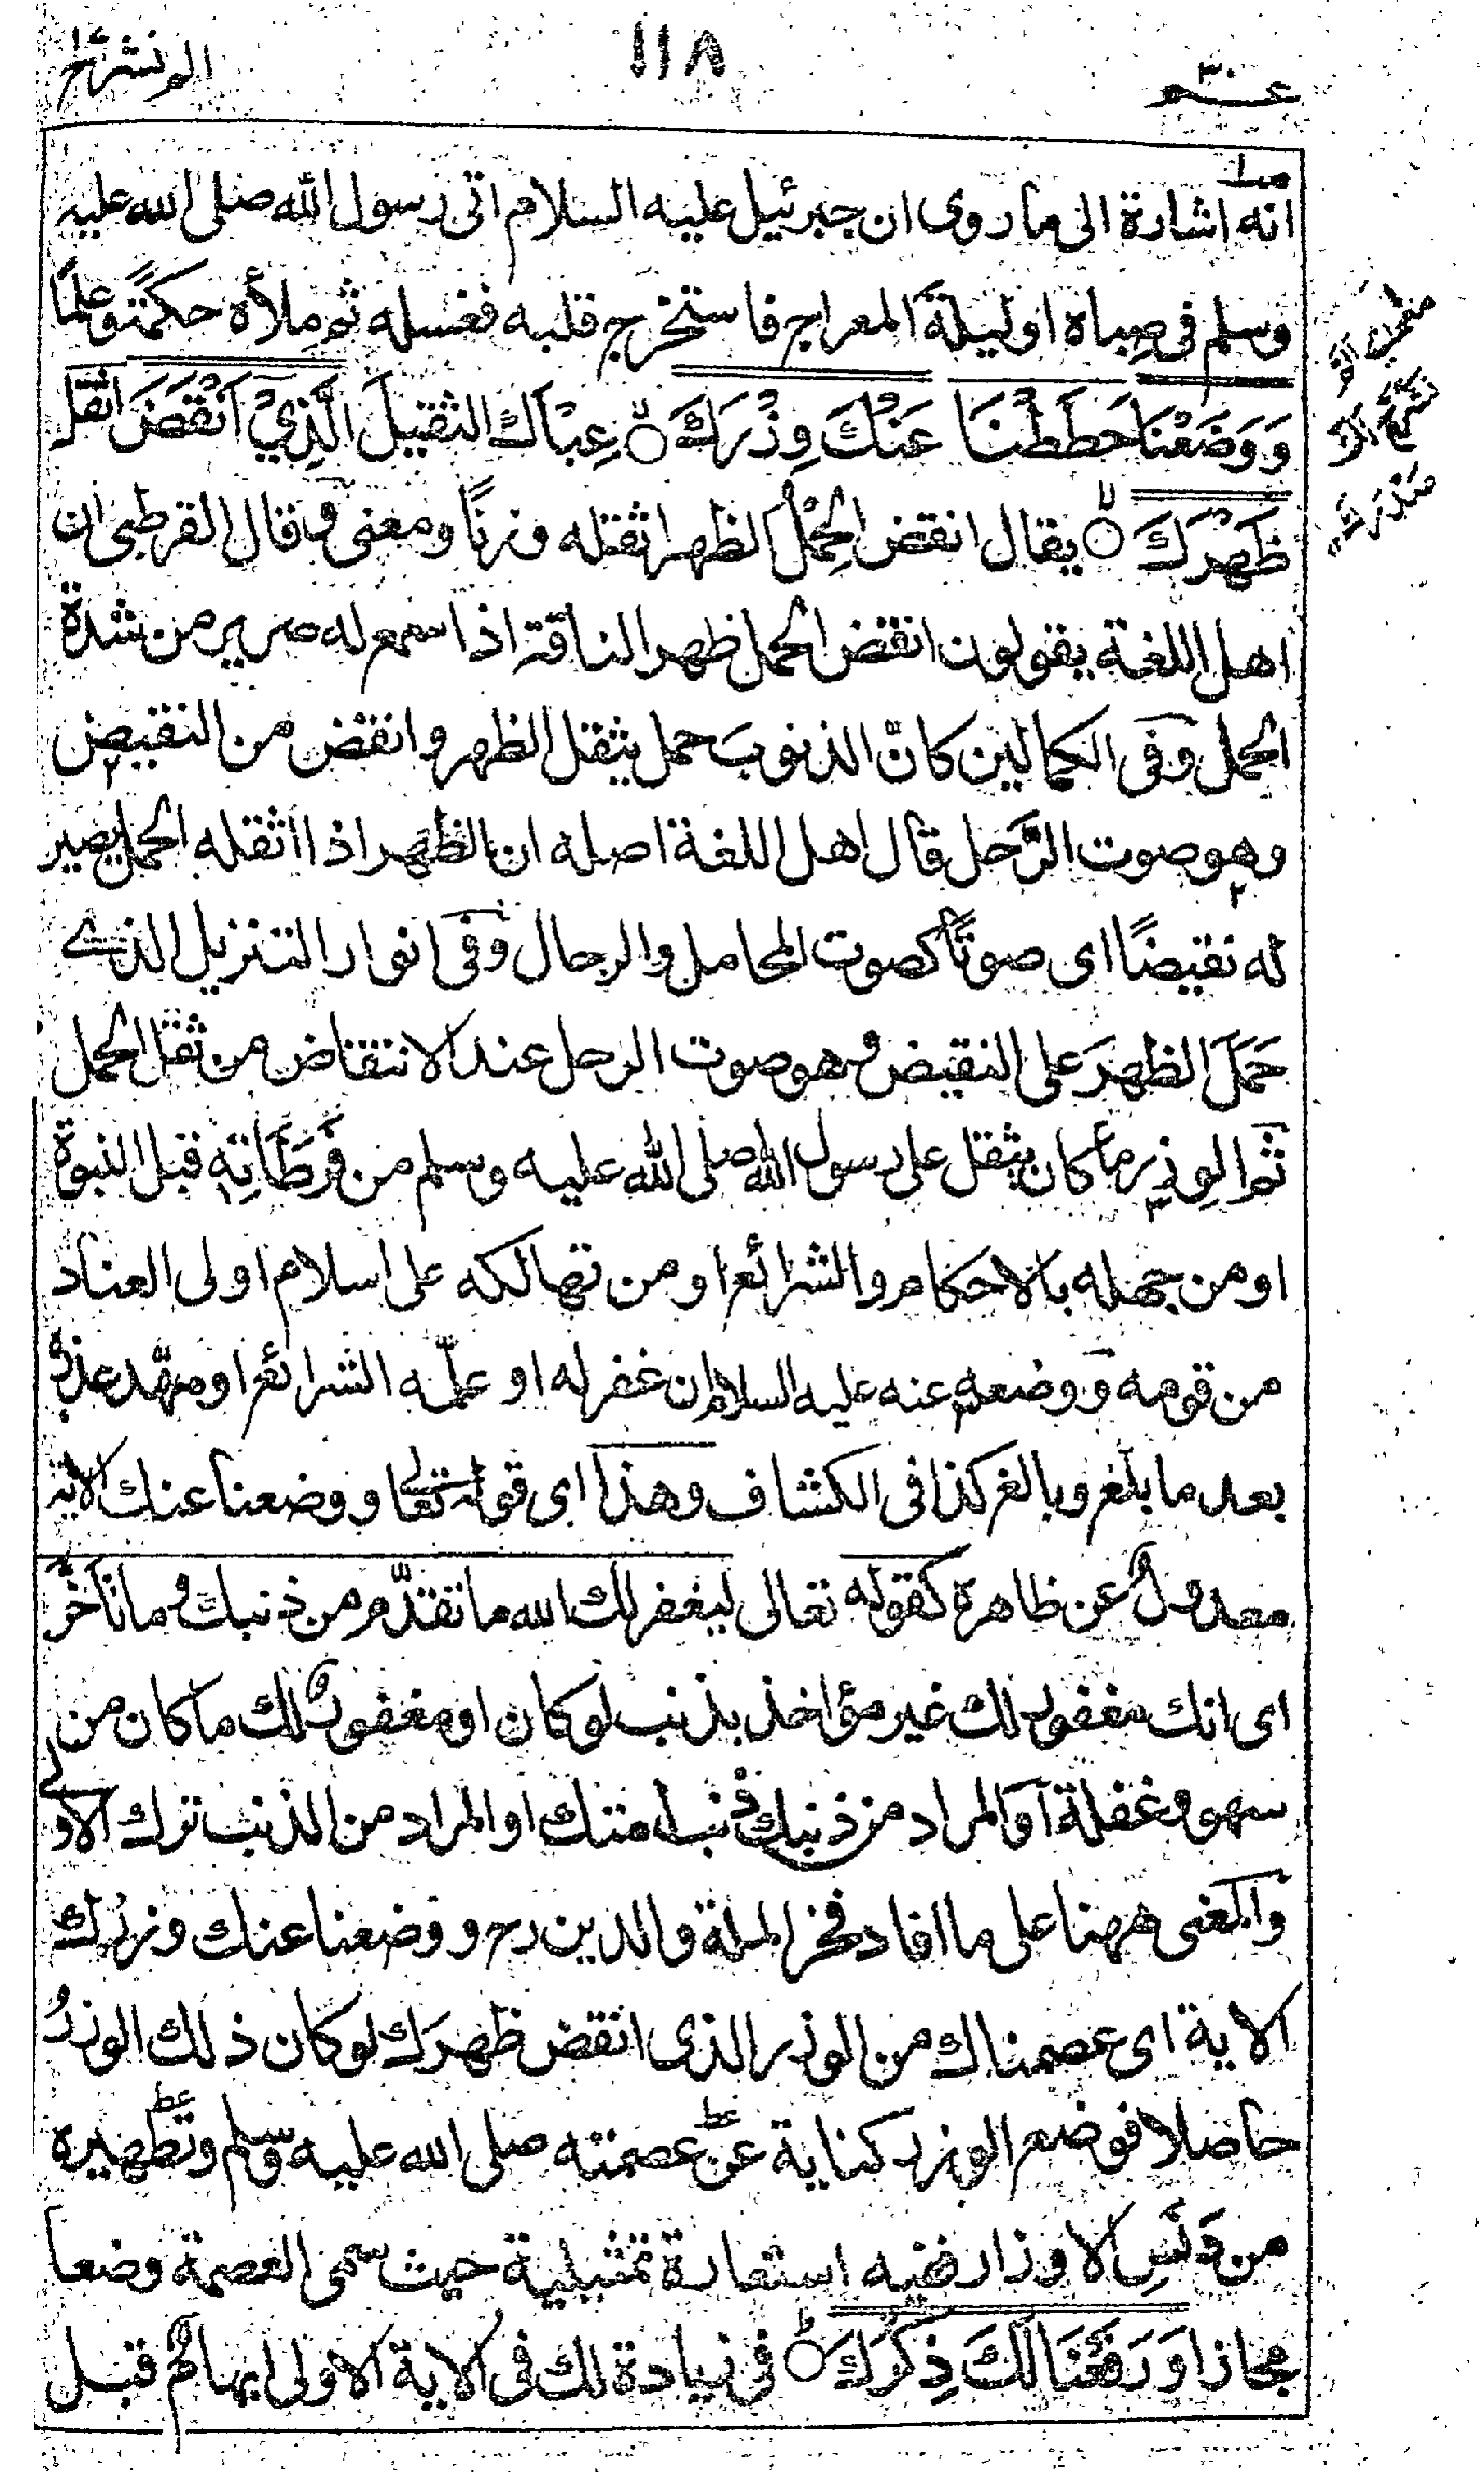 عـــم ٣٠
١١٨
الم نشرح
انه اشارة الى ما روى ان جبرئيل عليه السلام اتى رسول الله صلى الله عليه
وسلم فى صِباه او ليلةَ المعراج فاستخرج قلبه فغسله ثم ملأه حكمةً وعلمًا
وَوَضَعْنَا حَطَطْنَا عَنْكَ وِزْرَكَ ۝ عِبْأَك الثقيلَ الَّذِيْٓ اَنْقَضَ اثقل
ظَهْرَكَ ۝ يقال انقض الحِمْلُ الظهرا ثقله وزنًا ومعنى وقال القرطبى ان
اهل اللغة يقولون انقض الحمل ظهر الناقة اذا سمع له صرير من شدة
الحمل وفى الكمالين كانّ الذنوبَ حمل يثقل الظهر وانقض من النقيض
وهو صوت الرَّحل قال اهل اللغة اصله ان الظهر اذا اثقله الحمل يصير
له نقيضًا اى صوتًا كصوت المحامل والرحال وفى انوار التنزيل الذے
حَمَلَ الظهرَ على النقيض وهو صوت الرحل عند الانتقاض من ثقل الحمل
ثم الوِزر ما كان يثقل على رسول الله صلى الله عليه وسلم من فَرَطَاتِهٖ قبل النبوة
او من جهله بالاحكام والشرائع او من تهالكه على اسلام اولى العناد
من قومه ووضعه عنه عليه السلام ان غفر له او علّمه الشرائع او مهّد عذره
بعد ما بلّغ وبالغ كذا فى الكشاف وهذا اى قوله تعالى ووضعنا عنك الاية
معدولٌ عن ظاهره كقوله تعالى ليغفر لك الله ما تقدّم من ذنبك وما تأخر
اى انك مغفور لك غير مؤاخذ بذنب لو كان او مغفورٌ لك ما كان من
سهو وغفلة او المراد من ذنبك ذنب امتك او المراد من الذنب ترك الاولٰى
والمعنى ههنا على ما افاد فخر الملة والدين رح ووضعنا عنك وزرك
الاية اى عصمناك من الوزر الذى انقض ظهرَك لو كان ذلك الوزرُ
حاصلا فوضع الوزر كناية عن عصمته صلى الله عليه وسلم وتطهيره
من دَنَسِ الاوزار ففيه استعارة تمثيلية حيث سمى العصمة وضعا
مجازا وَرَفَعْنَا لَكَ ذِكْرَكَ ۝ فى زيادة لك فى الاية الاولى ابهامٌ قبل